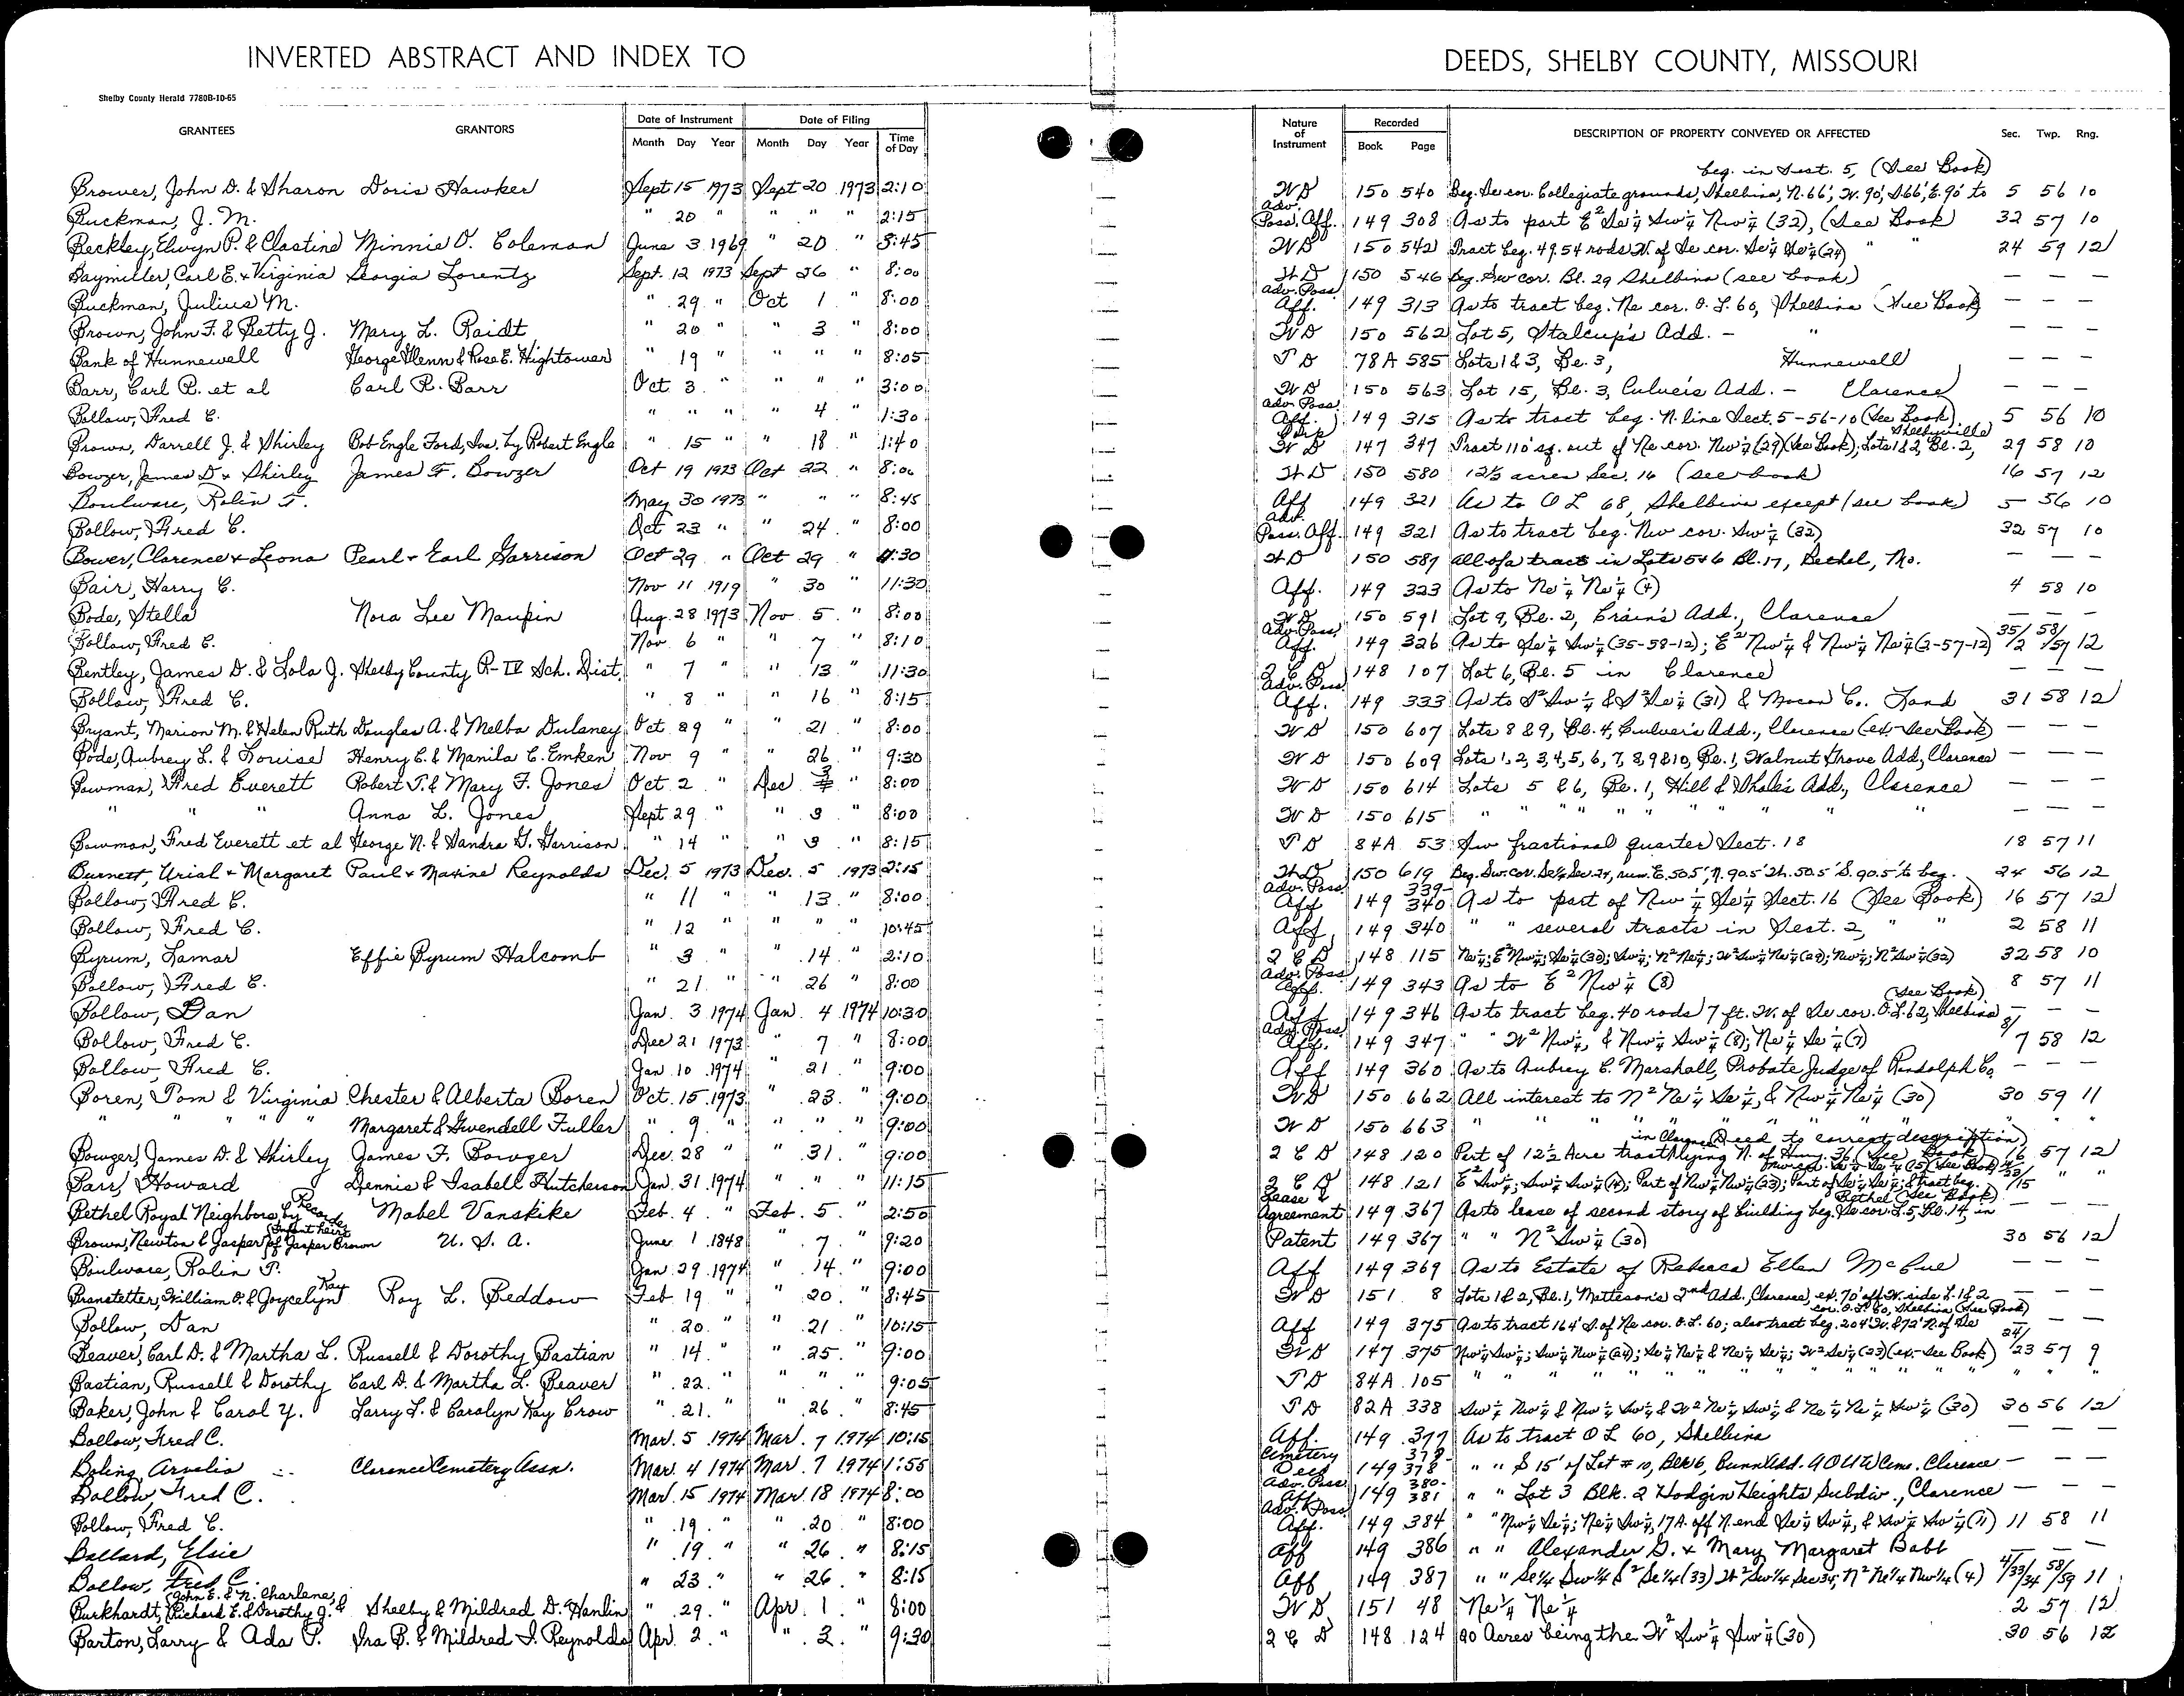 INVERTED ABSTRACT AND INDEX TO DEEDS, SHELBY COUNTY, MISSOURI
Shelby County Herald 7780B-10-65
GRANTEES GRANTORS Date of Instrument Date of Filing Nature of Instrument Recorded DESCRIPTION OF PROPERTY CONVEYED OR AFFECTED Sec. Twp. Rng.
Month Day Year Month Day Year Time of Day Book Page
beg. in Sect. 5, (See Book)
Brower, John D. & Sharon Doris Hawker Sept 15 1973 Sept 20 1973 2:10 WD 150 540 Beg. Se cor. Collegiate grounds, Shelbina, N. 66', W. 90', S 66', E. 90' to 5 56 10
Buckman, J. M. " 20 " " " " 2:15 Adv. Poss. Aff. 149 308 As to part E² Se¼ Sw¼ Nw¼ (32), (See Book) 32 57 10
Beckley, Elwyn P. & Clastine Minnie O. Coleman June 3 1969 " 20 " 8:45 WD 150 542 Tract beg. 49.54 rods W. of Se cor. Se¼ Se¼ (24) " " 24 59 12
Baymiller, Carl E. & Virginia Georgia Lorentz Sept. 12 1973 Sept 26 " 8:00 WD 150 546 beg. Sw cor. Bl. 29 Shelbina (see book) — — —
Buckman, Julius M. " 29 " Oct 1 " 8:00 Adv. Poss. Aff. 149 313 As to tract beg. Ne cor. O. L. 60, Shelbina (See Book) — — —
Brown, John F. & Betty J. Mary L. Raidt " 20 " " 3 " 8:00 WD 150 562 Lot 5, Stalcup's Add. - " — — —
Bank of Hunnewell George Glenn & Rose E. Hightower " 19 " " " " 8:05 TD 78A 585 Lots 1 & 3, Bl. 3, Hunnewell — — —
Barr, Carl R. et al Carl R. Barr Oct 3 " " " " 3:00 WD 150 563 Lot 15, Bl. 3, Culver's Add. - Clarence — — —
Bollow, Fred C. " " " " 4 " 1:30 Adv. Poss. Aff. 149 315 As to tract beg. N. line Sect. 5-56-10 (See Book) 5 56 10
Brown, Darrell J. & Shirley Bob Engle Ford, Inc. by Robert Engle " 15 " " 18 " 1:40 Corp WD 147 347 Tract 110' sq. out of Ne cor. Nw¼ (29) (See Book); Lots 1 & 2, Bl. 2, Shelbyville 29 58 10
Bowzer, James D & Shirley James F. Bowzer Oct 19 1973 Oct 22 " 8:00 WD 150 580 12½ acres Sec. 16 (see book) 16 57 12
Boulware, Rolin T. May 30 1973 " " " 8:45 Aff 149 321 As to O L 68, Shelbina except (see book) 5 56 10
Bollow, Fred C. Oct 23 " " 24 " 8:00 Adv. Poss. Aff. 149 321 As to tract beg. Nw cor. Sw¼ (32) 32 57 10
Bower, Clarence & Leona Pearl & Earl Garrison Oct 29 " Oct 29 " 4:30 WD 150 587 all of a tract in Lots 5 & 6 Bl. 17, Bethel, Mo. — — —
Bair, Harry C. Nov 11 1919 " 30 " 11:30 Aff. 149 323 As to Ne¼ Ne¼ (4) 4 58 10
Bode, Stella Nora Lee Maupin Aug. 28 1973 Nov. 5 " 8:00 WD 150 591 Lot 9, Bl. 2, Crain's Add., Clarence — — —
Bollow, Fred C. Nov 6 " " 7 " 8:10 Adv. Poss. Aff. 149 326 As to Se¼ Sw¼ (35-58-12); E² Nw¼ & Nw¼ Ne¼ (2-57-12) 35/2 58/57 12
Bentley, James D. & Lola J. Shelby County R-IV Sch. Dist. " 7 " " 13 " 11:30 2 C D 148 107 Lot 6, Bl. 5 in Clarence — —
Bollow, Fred C. " 8 " " 16 " 8:15 Adv. Poss. Aff. 149 333 As to S² Sw¼ & S² Se¼ (31) & Macon C. Land 31 58 12
Bryant, Marion M. & Helen Ruth Douglas A. & Melba Dulaney Oct 29 " " 21 " 8:00 WD 150 607 Lots 8 & 9, Bl. 4, Culver's Add., Clarence (ex.-See Book) — — —
Bode, Aubrey L. & Louise Henry C. & Manila C. Emken Nov 9 " " 26 " 9:30 WD 150 609 Lots 1, 2, 3, 4, 5, 6, 7, 8, 9 & 10, Bl. 1, Walnut Grove Add., Clarence — — —
Bowman, Fred Everett Robert T. & Mary F. Jones Oct 2 " Dec 3 " 8:00 WD 150 614 Lots 5 & 6, Bl. 1, Hill & Whale's Add., Clarence — — —
" " " Anna L. Jones Sept 29 " " 3 " 8:00 WD 150 615 " " " " " " " " "
Bowman, Fred Everett et al George N. & Sandra G. Garrison " 14 " " 3 " 8:15 TD 84A 53 Sw fractional quarter Sect. 18 18 57 11
Burnett, Urial & Margaret Paul & Maxine Reynolds Dec. 5 1973 Dec. 5 1973 2:15 WD 150 619 Beg. Sw. cor. Se¼ Sec 24, run E. 50.5', N. 90.5' W. 50.5' S. 90.5' to beg. 24 56 12
Bollow, Fred C. " 11 " " 13 " 8:00 Adv. Poss. Aff 149 339-340 As to part of Nw¼ Se¼ Sect. 16 (See Book) 16 57 12
Bollow, Fred C. " 12 " " " " 10:45 Aff 149 340 " " several tracts in Sect. 2, " " 2 58 11
Byrum, Lamar Effie Byrum Halcomb " 3 " " 14 " 2:10 2 C D 148 115 Ne¼; E² Nw¼; Se¼ (30); Sw¼; N² Ne¼; W² Sw¼ Ne¼ (29); Nw¼; N² Sw¼ (32) 32 58 10
Bollow, Fred C. " 21 " " 26 " 8:00 Adv. Poss. Aff. 149 343 As to E² Nw¼ (8) 8 57 11
Bollow, Dan Jan. 3 1974 Jan. 4 1974 10:30 Aff 149 346 As to tract beg. 40 rods 7 ft. W. of Se cor. O.L. 62, Shelbina (See Book) — — —
Bollow, Fred C. Dec 21 1973 " 7 " 8:00 Adv. Poss. Aff. 149 347 " " W² Nw¼, & Nw¼ Sw¼ (8); Ne¼ Se¼ (7) 8/7 58 12
Bollow, Fred C. Jan. 10 1974 " 21 " 9:00 Aff 149 360 As to Aubrey C. Marshall, Probate Judge of Randolph Co. — — —
Boren, Tom & Virginia Chester & Alberta Boren Oct. 15 1973 " 23 " 9:00 WD 150 662 All interest to N² Ne¼ Se¼, & Nw¼ Ne¼ (30) 30 59 11
" " " " Margaret & Gwendell Fuller " 9 " " " " 9:00 WD 150 663 " " " " " " " " " "
Bowzer, James D. & Shirley James F. Bowzer Dec. 28 " " 31 " 9:00 2 C D 148 120 Part of 12½ Acre tract lying N. of Hwy. 36 (See Book) in Clarence Deed to correct description 16 57 12
Barr, Howard Dennis & Isabell Hutcherson Jan. 31 1974 " " " 11:15 2 C D 148 121 E² Sw¼; Sw¼ Sw¼ (14); Part of Nw¼ Nw¼ (23); Part of Se¼ Se¼; & tract beg. " "
Bethel Royal Neighbors by Recorder Mabel Vanskike Feb. 4 " Feb. 5 " 2:50 Lease & Agreement 149 367 As to lease of second story of building beg. Se cor. L. 5, Bl. 14, in Bethel (See Book) — — —
Brown, Newton & Jasper Infant heirs of Jasper Brown U. S. A. June 1 1848 " 7 " 9:20 Patent 149 367 " " N² Sw¼ (30) 30 56 12
Boulware, Rolin T. Jan 29 1974 " 14 " 9:00 Aff 149 369 As to Estate of Rebecca Ellen McCue — — —
Branstetter, William O. & Joycelyn Kay Roy L. Beddow Feb 19 " " 20 " 8:45 WD 151 8 Lots 1 & 2, Bl. 1, Matteson's 2nd Add., Clarence, ex. 70' off W. side L. 1 & 2 — — —
Bollow, Dan " 20 " " 21 " 10:15 Aff 149 375 As to tract 164' S. of Ne cor. O. L. 60; also tract beg. 204' W. & 72' N. of Se cor. O. L. 60, Shelbina (See Book) — —
Beaver, Carl D. & Martha L. Russell & Dorothy Bastian " 14 " " 25 " 9:00 WD 147 375 Nw¼ Sw¼; Sw¼ Nw¼ (24); Se¼ Ne¼ & Ne¼ Se¼; W² Se¼ (23) (ex.-See Book) 24/23 57 9
Bastian, Russell & Dorothy Carl D. & Martha L. Beaver " 22 " " " " 9:05 TD 84A 105 " " " " " " " " " " " "
Baker, John & Carol Y. Larry L. & Carolyn Kay Crow " 21 " " 26 " 8:45 TD 82A 338 Sw¼ Nw¼ & Nw¼ Sw¼ & W² Ne¼ Sw¼ & Ne¼ Ne¼ Sw¼ (30) 30 56 12
Bollow, Fred C. Mar. 5 1974 Mar. 7 1974 10:15 Aff. 149 377 As to tract O L 60, Shelbina — —
Boling, Arvelia Clarence Cemetery Assn. Mar. 4 1974 Mar. 7 1974 1:55 Cemetery Deed 149 378 " " S 15' of Lot # 10, Blk 6, Bunn Add. A O U W Cem. Clarence — — —
Bollow, Fred C. Mar. 15 1974 Mar. 18 1974 8:00 Adv. Poss. Aff 149 380-381 " " Lot 3 Blk. 2 Hodgin Heights Subdiv., Clarence — — —
Bollow, Fred C. " 19 " " 20 " 8:00 Adv. Poss. Aff. 149 384 " " Nw¼ Se¼; Ne¼ Sw¼, 17A. off N. end Se¼ Sw¼, & Sw¼ Sw¼ (11) 11 58 11
Ballard, Elsie " 19 " " 26 " 8:15 Aff 149 386 " " Alexander G. & Mary Margaret Babb — — —
Bollow, Fred C. " 23 " " 26 " 8:15 Aff 149 387 " " Se¼ Sw¼ & S² Se¼ (33) W² Sw¼ Sec 34, N² Ne¼ Nw¼ (4) 4/33/34 58/59 11
Burkhardt, John E. & N. Charlene, & Richard E. & Dorothy J. Shelby & Mildred D. Hanlin " 29 " Apr. 1 " 8:00 WD 151 48 Ne¼ Ne¼ 2 57 12
Barton, Larry & Ada P. Ira B. & Mildred I. Reynolds Apr. 2 " " 2 " 9:30 2 C D 148 124 20 Acres being the W² Sw¼ Sw¼ (30) 30 56 12